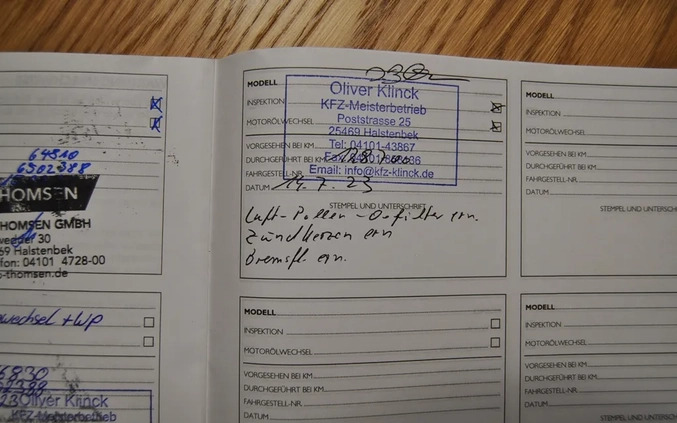 64310
6502388
HOMSEN
HOMSEN GMBH
weg 30
69 Halstenbek
fon: 04101 4728-00
-thomsen.de
wechsel + WP
6830
Oliver Klinck
KFZ-Meisterbetrieb
MODELL
INSPEKTION
MOTORÖLWECHSEL
VORGESEHEN BEI KM
DURCHGEFÜHRT BEI KM
FAHRGESTELL-NR.
DATUM 14.7.23
Oliver Klinck
KFZ-Meisterbetrieb
Poststrasse 25
25469 Halstenbek
Tel: 04101-43867
Email: info@kfz-klinck.de
STEMPEL UND UNTERSCHRIFT
Luft-Pollen-Ölfilter ern.
Zündkerzen ern
Bremsfl. ern.
MODELL
INSPEKTION
MOTORÖLWECHSEL
VORGESEHEN BEI KM
DURCHGEFÜHRT BEI KM
FAHRGESTELL-NR.
DATUM
MODELL
INSPEKTION
MOTORÖLWECHSEL
VORGESEHEN BEI KM
DURCHGEFÜHRT BEI KM
FAHRGESTELL-NR.
DATUM
STEMPEL UND UNTERSCHRIFT
MODELL
INSPEKTION
MOTORÖLWECHSEL
VORGESEHEN BEI KM
DURCHGEFÜHRT BEI KM
FAHRGESTELL-NR.
DATUM